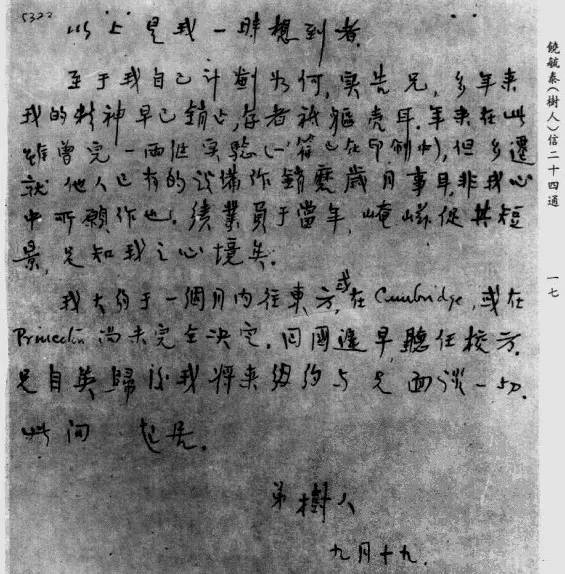 5322
以上是我一時想到者.
至于我自己計劃如何,实告兄,多年来
我的精神早已銷亡,存者祇軀壳耳.年来在此
雖曾完一两件实驗(一篇已在印刷中),但多遷
就他人已有的设備作銷磨歲月事耳非我心
中所願作也.績業負于當年,崦嵫促其短
景,足知我之心境矣.
我大约于一個月内往東方,或在Cambridge,或在
Princeton尚未完全决定.回國遲早,聽任校方.
兄自英歸後我将来纽约与兄面谈一切.
此问 起居.
弟樹人
九月十九.
饒毓泰(樹人)信二十四通
一七